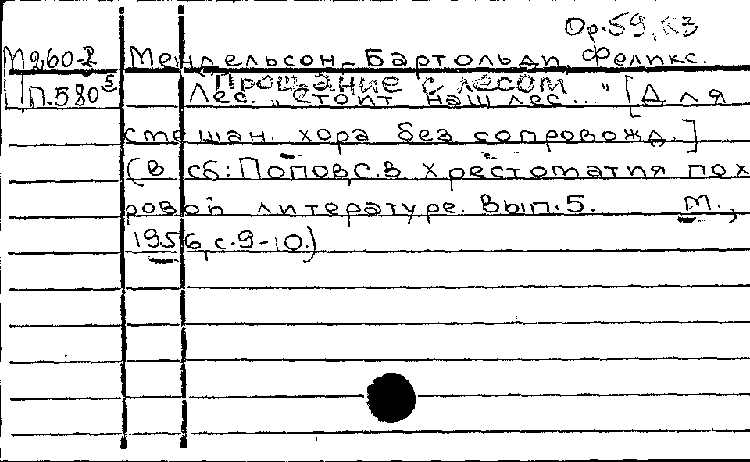 Op.59, к3
М960-2 Мендельсон-Бартольди, Феликс.
Прощание с лесом
П.580⁵ Лес. "Стоит наш лес..." [Для
смешан. хора без сопровожд.]
(В сб: Попов, С.В Хрестоматия по х
ровой литературе. Вып.5. М.,
1956, с.9-10.)